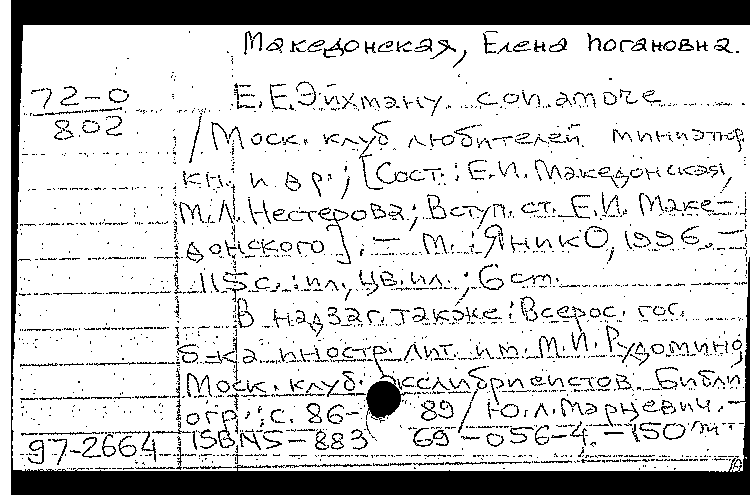 Македонская, Елена Иогановна.
72-0
802
Е.Е.Эйхману con amore
/ Моск. клуб любителей миниатюр.
кн. и др.; [Сост.: Е.И. Македонская,
М.Л. Нестерова; Вступ. ст. Е.И. Маке-
донского]. – М.: ЯникО, 1996. –
115 с.: ил., цв. ил.; 6 см.
В надзаг. также: Всерос. гос.
б-ка иностр. лит. им. М.И. Рудомино,
Моск. клуб экслибрисистов. Библи
огр.: с. 86- 89 / Ю.Л. Марцевич. –
97-2664 ISBN 5-883 69-056-4. – 150